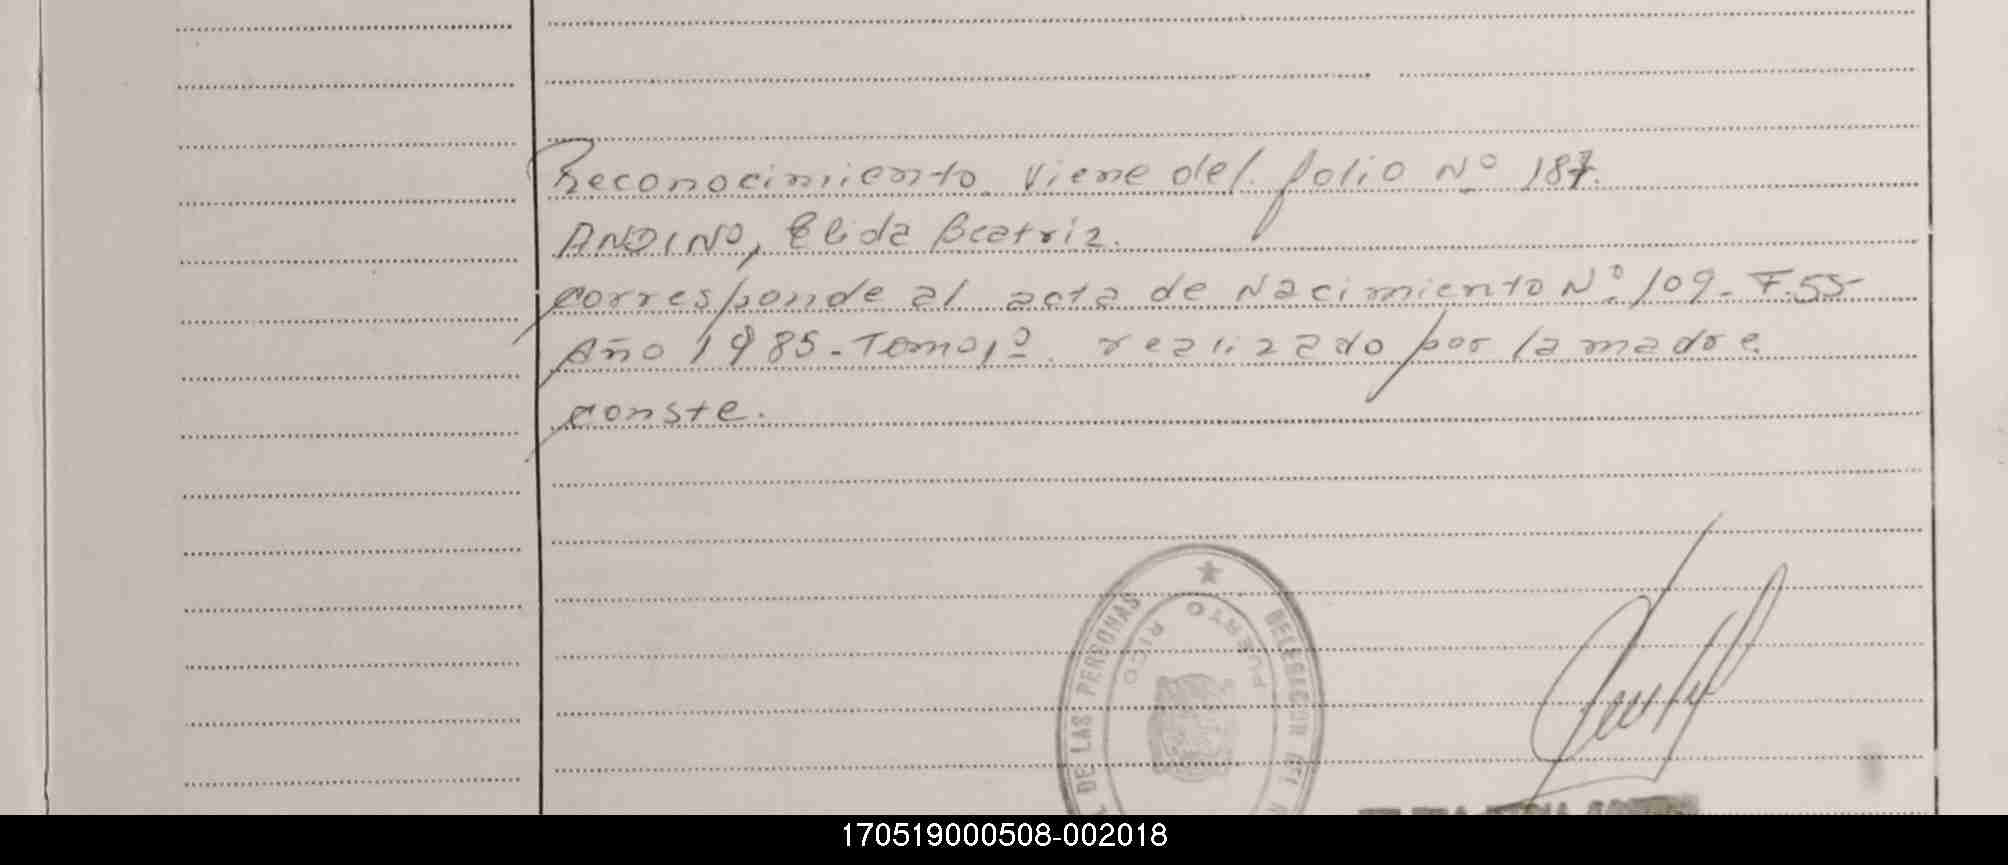 Reconocimiento viene del folio Nº 187.
ANDINO, Elida Beatriz.
Corresponde al acta de Nacimiento Nº 109 - F. 55-
Año 1985 - Tomo 1º. realizado por la madre
Conste.
DE LAS PERSONAS ★ DELEGACION DEL R
PUERTO RICO
170519000508-002018